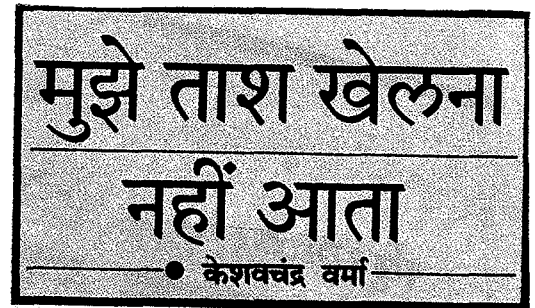 मुझे ताश खेलना
नहीं आता
● केशवचंद्र वर्मा